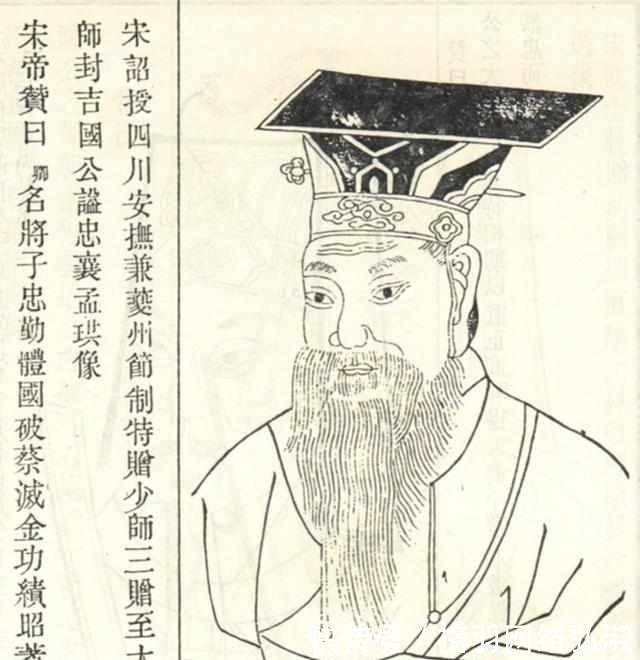 宋詔授四川安撫兼夔州節制特贈少師三贈至太
師封吉國公謚忠襄孟珙像
宋帝贊曰卿名將子忠勤體國破蔡滅金功績昭著